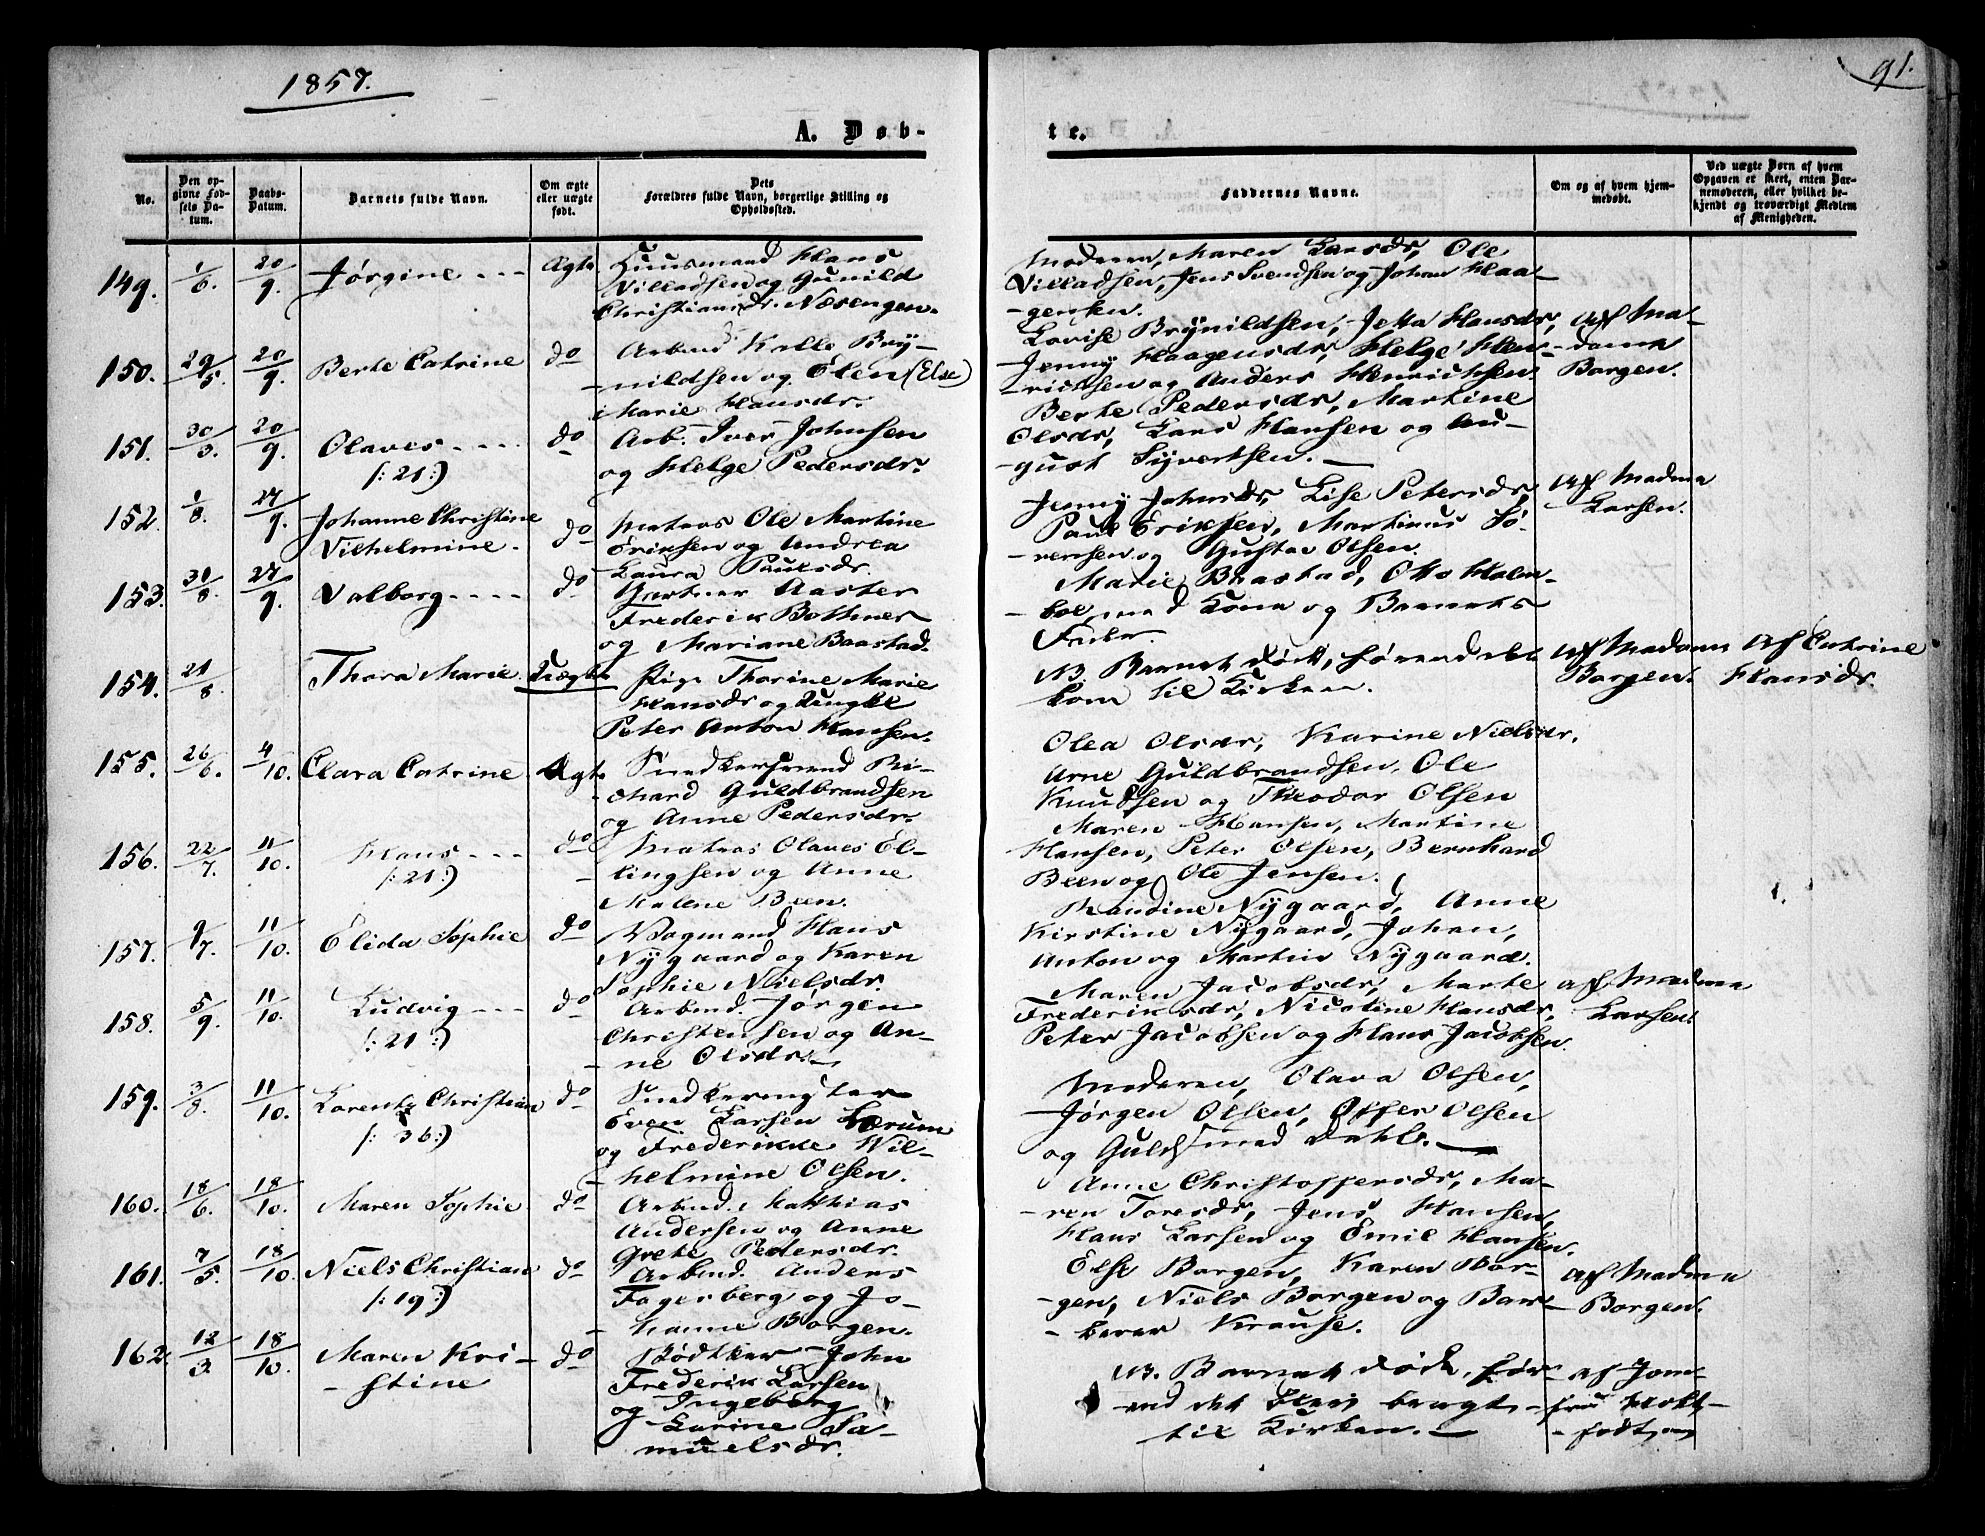 1857.
91.
A. Døb-
te.
No.
Den op-
givne Fød-
sels Da-
tum.
Daabs-
Datum.
Barnets fulde Navn.
Om ægte
eller uægte
født.
Dets
Forældres fulde Navn, borgerlige Stilling og
Opholdssted.
Faddernes Navne.
Om og af hvem hjem-
medøbt.
Ved uægte Børn af hvem
Opgaven er skeet, enten Bar-
nemoderen, eller hvilket be-
kjendt og troværdigt Medlem
af Menigheden.
149. 1/6. 20/9. Jørgine Ægte
Huusmand Hans
Villadsen og Gunild
Christiansdr. Næsengen.
Moderen, Maren Larsdr, Ole
Villadsen, Jens Svendsen og Johan Haa-
-gensen.
150. 29/5. 20/9. Berte Catrine do
Arbmd Kalle Bry-
-nildsen og Elen (Else)
Marie Hansdr.
Lovise Brynildsen, Jetta Hansdr,
Jenny Haagensdr, Helge Hen-
-richsen og Anders Henrichsen.
Af Ma-
-dame
Borgen.
151. 30/3. 20/9. Olaves
/: 21 :/
do
Arb. Iver Johnsen
og Helge Pedersdr.
Berte Pedersdr, Martine
Olsdr, Lars Hansen og Au-
-gust Syvertsen.
152. 1/8. 27/9. Johanne Christine
Vilhelmine.
do
Matros Ole Martine
Eriksen og Andrea
Laura Paulsdr.
Jenny Johnsdr, Lise Petersdr,
Paul Eriksen, Martinus Sø-
-rensen og Gustav Olsen.
Af Madme
Larsen.
153. 30/8. 27/9. Valborg do
Gartner Aaster
Frederik Bothner
og Mariane Baastad.
Marie Baastad, Otto Holm-
-boe, med Kone og Barnets
Fader.
154. 21/8 Thora Marie. Uægte
Pige Thorine Marie
Hansdr og Ungkl
Peter Anton Hansen.
NB. Barnet døde, førend det
kom til Kirken.
Af Madam
Borgen.
Af Catrine
Hansdr.
155. 26/6. 4/10. Clara Catrine Ægte
Snedkersvend Ri-
-chard Guldbrandsen
og Anne Pedersdr.
Olea Olsdr, Karine Nielsdr.
Arne Guldbrandsen, Ole
Knudsen og Theodor Olsen
156. 22/7. 11/10. Hans
/: 21 :/
do
Matros Olaves El-
-lingsen og Anne
Malene Been.
Maren Hansen, Martine
Hansen, Peter Olsen, Bernhard
Been og Ole Jensen.
157. 9/7. 11/10. Elida Sophie do
Vogmand Hans
Nygaard og Karen
Sophie Nielsdr.
Randine Nygaard, Anne
Kirstine Nygaard, Johan,
Anton og Martin Nygaard.
158. 5/9. 11/10. Ludvig
/: 21 :/
do
Arbmd. Jørgen
Christensen og An-
-ne Olsdr.
Maren Jacobsdr, Marte
Frederiksdr, Nicoline Hansdr,
Peter Jacobsen og Hans Jacobsen.
Af Madme
Larsen.
159. 3/8. 11/10. Lorentz Christian
/: 36 :/
do
Snedkermester
Even Larsen Lærum
og Frederikke Wil-
-helmine Olsen.
Moderen, Olava Olsen,
Jørgen Olsen, Offer Olsen
og Guldsmed Dahls.
160. 18/6. 18/10. Maren Sophie do
Arbmd. Matthias
Andersen og Anne
Grete Pedersdr.
Anne Christoffersdr, Ma-
-ren Toresdr, Jens Hansen,
Hans Larsen og Emil Hansen.
161. 7/5. 18/10. Niels Christian
/: 19 :/
do
Arbmd. Anders
Fagerberg og Jo-
-hanne Borgen.
Else Borgen, Karen Bor-
-gen, Niels Borgen og Bar-
-berer Krause.
Af Madme
Borgen.
162. 12/3. 18/10. Maren Kri-
-stine
do
Bødtker John
Frederik Larsen
og Ingeborg
Larine Sa-
muelsdr.
NB. Barnet døde, før-
-end det blev bragt
til Kirken.
af Jom-
-fru Holt-